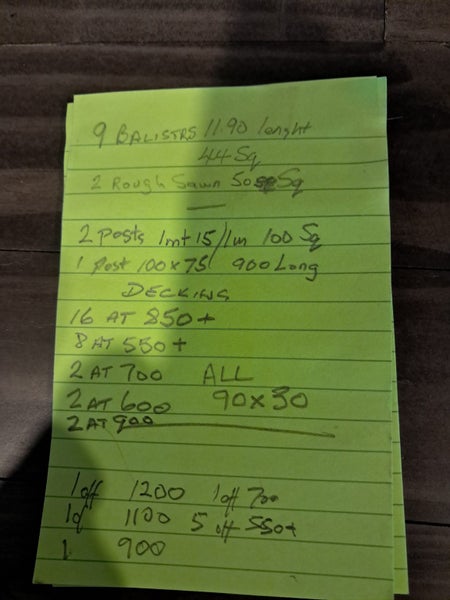 9 BALISTRS 11.90 lenght
44 Sq
2 Rough Sawn 50 Sq
2 Posts 1mt 15/1m 100 Sq
1 Post 100x75 900 Long
DECKING
16 AT 850+
8 AT 550+
2 AT 700 ALL
2 AT 600 90x30
2 AT 900
1 off 1200 1 off 700
1 of 1100 5 off 550+
1 900